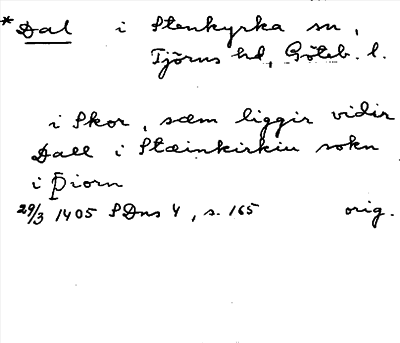 *Dal i Stenkyrka sn,
Tjörns hd, Göteb. l.
i Skor, sæm liggir vidir
Dall i Stæinkirkiu sokn
i Þiorn
29/3 1405 SDns 4, s. 165 orig.